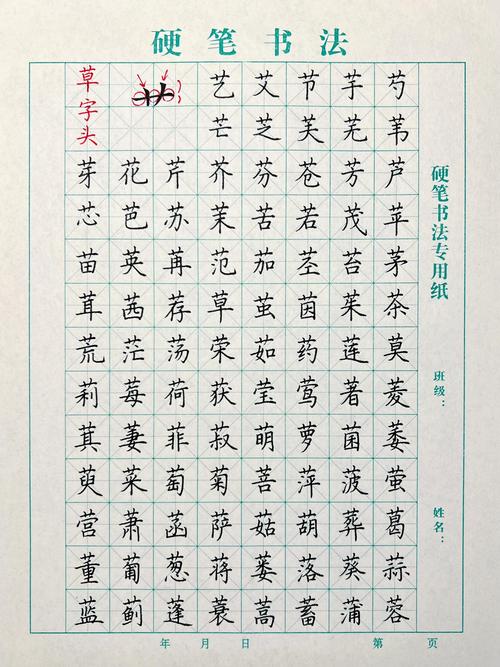 硬笔书法
草字头
艹
艺艾节芋芍
芒芝芙芜苇
芽花芹芥芬苍芳芦
芯芭苏茉苦若茂苹
苗英苒范茄茎苔茅
茸茜荐草茧茵茱茶
荒茫荡荣茹药莲莫
莉莓荷获莹莺著菱
萁萋菲菽萌萝菌萎
萸菜萄菊菩萍菠萤
营萧菡萨菇葫葬葛
董葡葱蒋蒌落葵蒜
蓝蓟蓬蓑蒿蓄蒲蓉
硬笔书法专用纸
班级：
姓名：
年 月 日 第 页